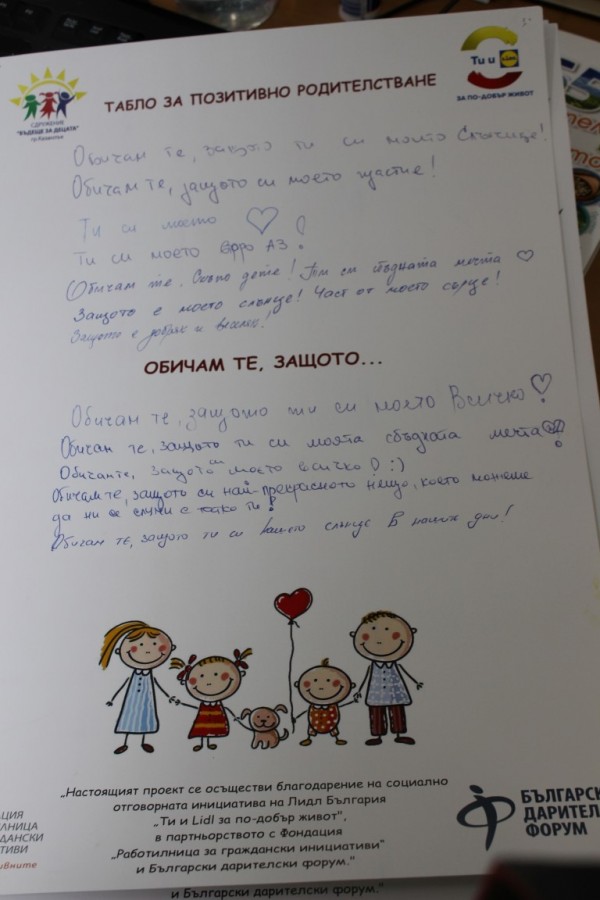 СДРУЖЕНИЕ
"БЪДЕЩЕ ЗА ДЕЦАТА"
гр.Казанлък
Ти и Lidl
ЗА ПО-ДОБЪР ЖИВОТ
ТАБЛО ЗА ПОЗИТИВНО РОДИТЕЛСТВАНЕ
Обичам те, защото ти си моето Слънчице!
Обичам те, защото си моето щастие!
Ти си моето
Ти си моето второ АЗ!
Обичам те. Скъпо дете! Ти си сбъдната мечта
Защото е моето слънце! Част от моето сърце!
Защото е добряк и веселяк!
ОБИЧАМ ТЕ, ЗАЩОТО...
Обичам те, защото ти си моето Всичко!
Обичам те, защото ти си моята сбъдната мечта!
Обичам те, защото си моето всичко! :)
Обичам те, защото си най-прекрасното нещо, което можеше
да ни се случи е ти!
Обичам те, защото ти си нашето слънце в нашия дом!
„Настоящият проект се осъществи благодарение на социално
отговорната инициатива на Лидл България
„Ти и Lidl за по-добър живот",
в партньорството с Фондация
„Работилница за граждански инициативи"
и Български дарителски форум."
и Български дарителски форум."
АЦИЯ
ИЛНИЦА
ДАНСКИ
АТИВИ
ивните
БЪЛГАРСК
ДАРИТЕЛ
ФОРУМ